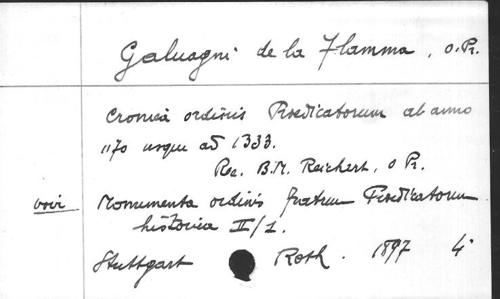 Galuagni de la Flamma, O.Pr.
Cronica ordinis Predicatorum ab anno
1170 usque ad 1333.
Rec. B.M. Reichert, O Pr.
voir Monumenta ordinis fratrum Predicatorum
historica II/1.
Stuttgart Roth. 1897 4°